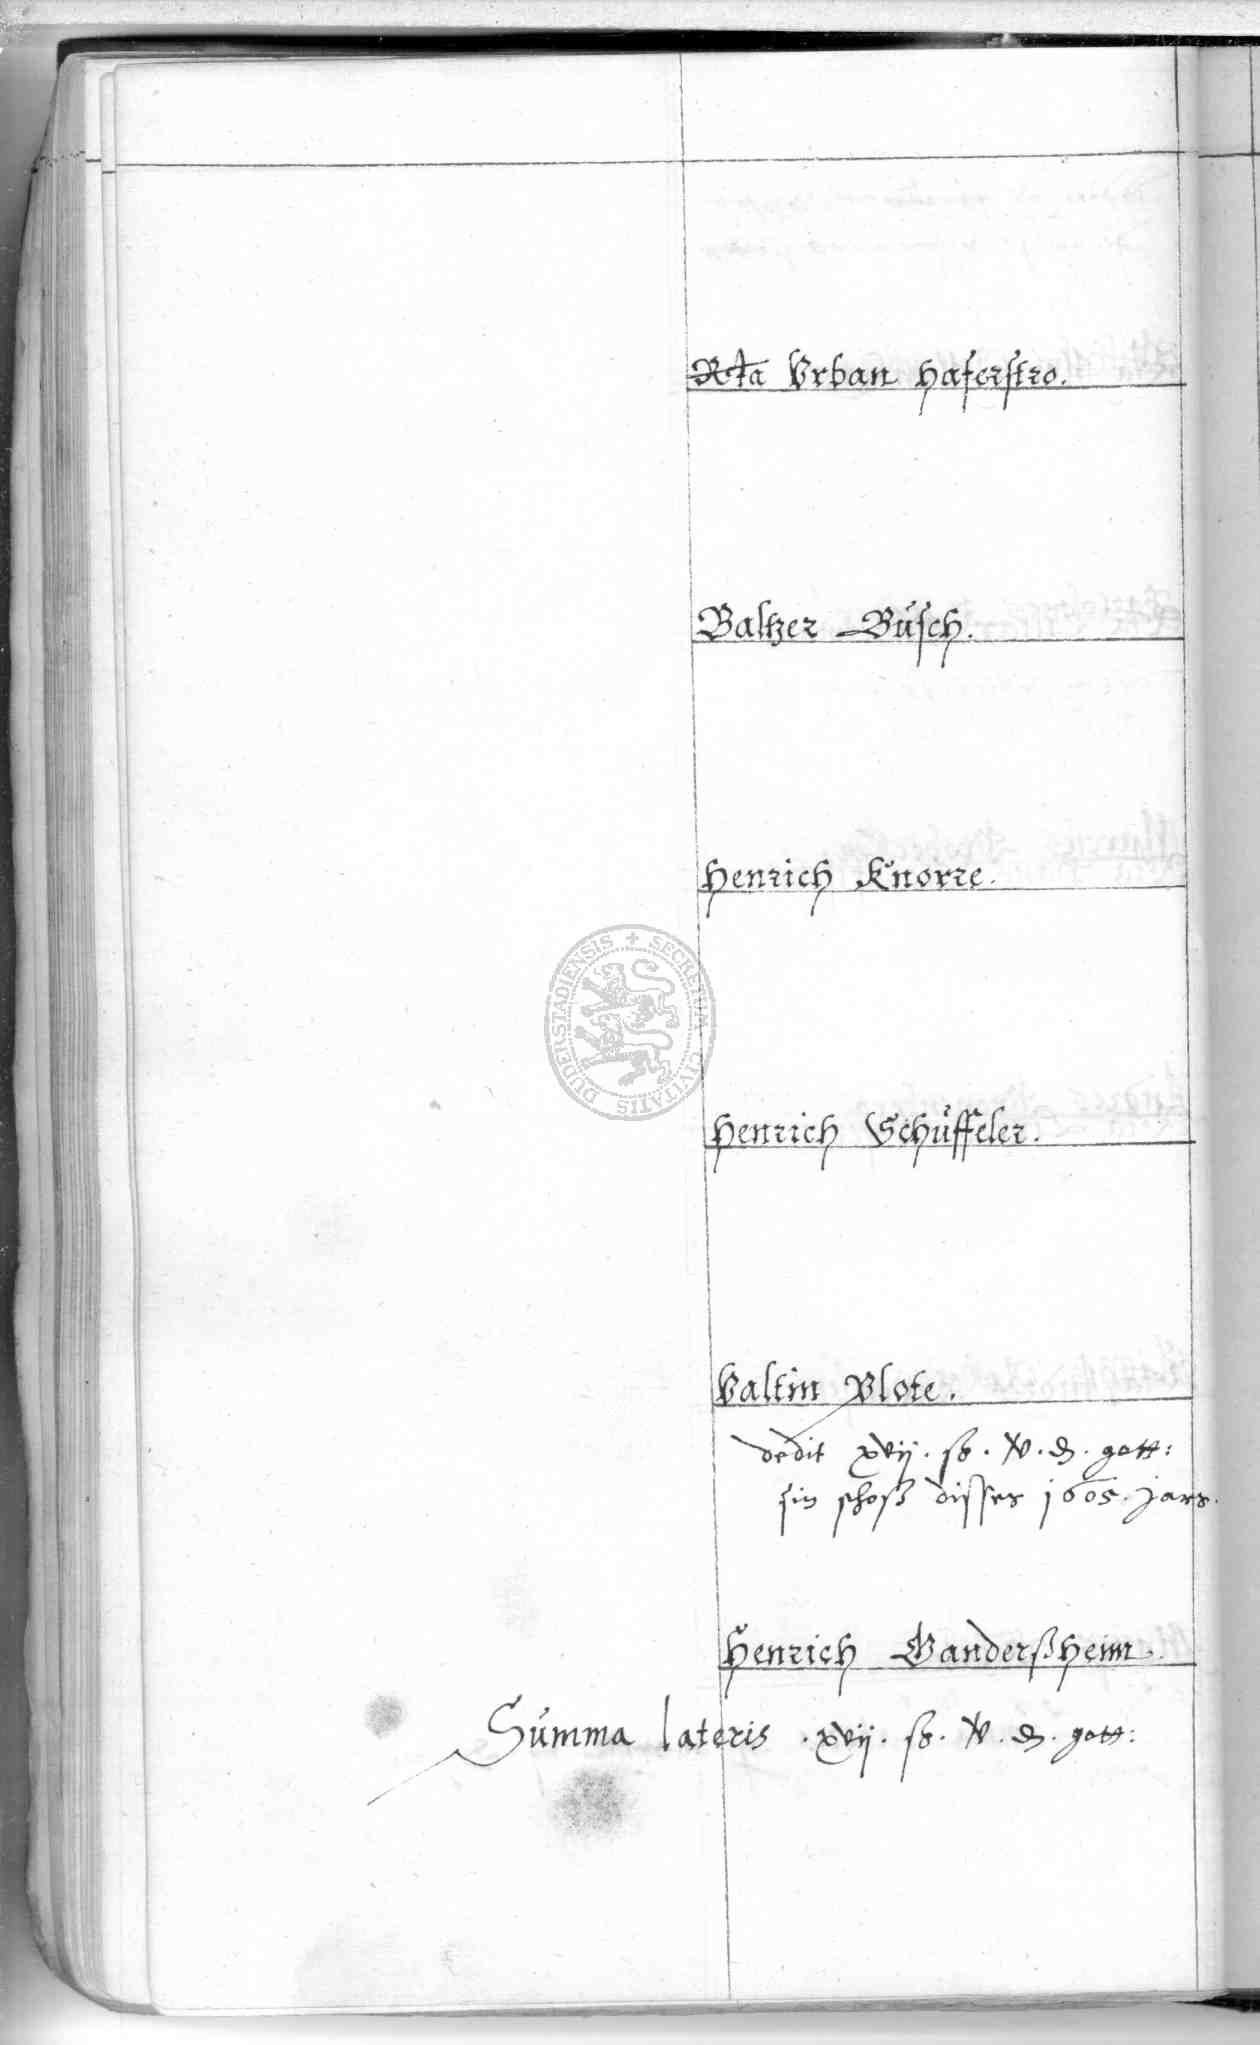 Rta Vrban Haferstro.
Baltzer Büsch.
Henrich Knorre.
DUDERSTADIENSIS + SECRETUM CIVITATIS
Henrich Schüffeler.
Valtin Plote.
dedit xvij. ß. v. d. gott:
sin schoß disses 1605. jars.
Henrich Ganderßheim.
Summa lateris . xvij. ß. v. d. gott: